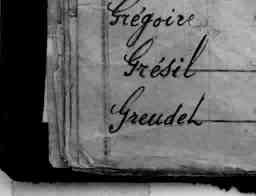 Grégoire
Grésil
Greudel